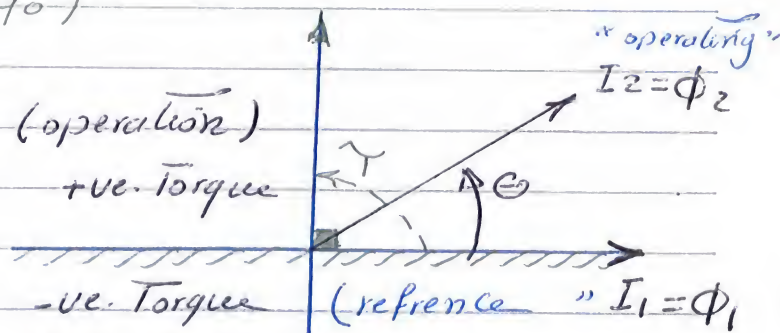 "operating"
I2=ϕ2
(operation)
+ve. Torque
γ
θ
-ve. Torque (refrence " I1=ϕ1